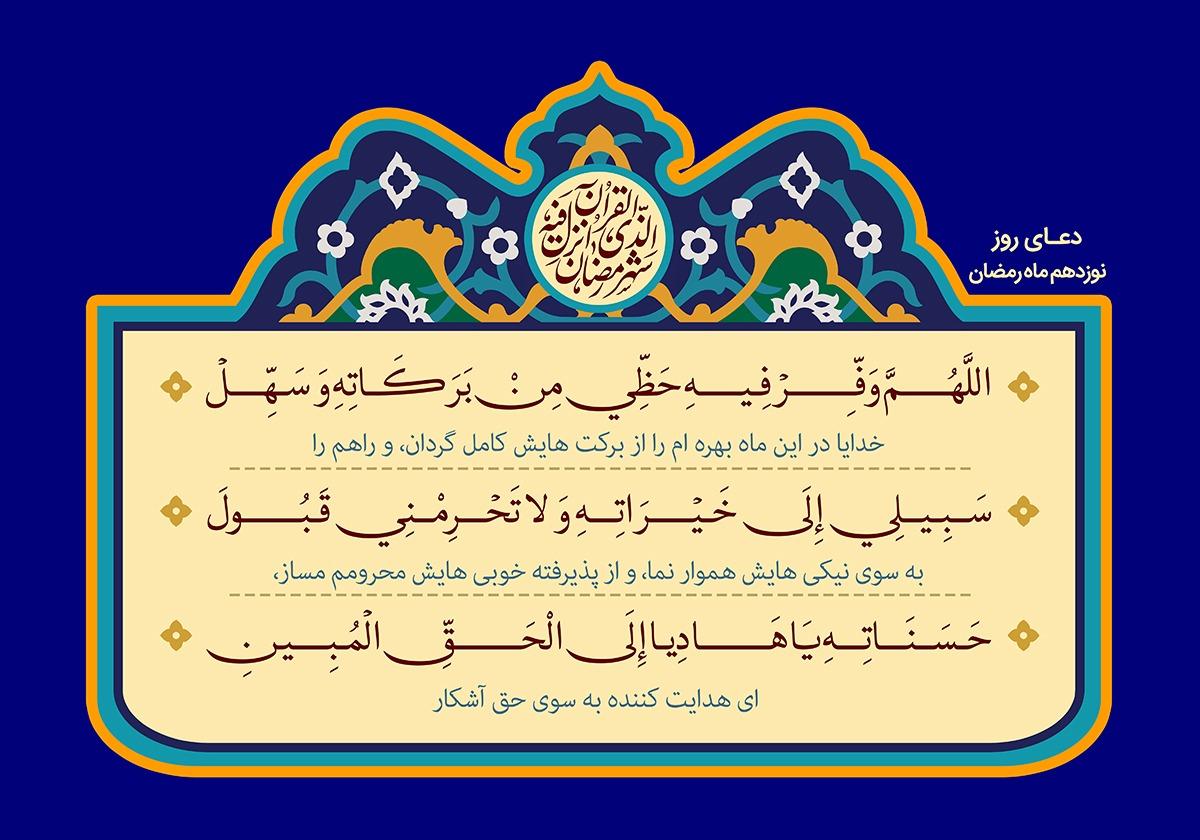 شهر رمضان الذی انزل فیه القرآن
دعـای روز
نوزدهم ماه رمضان
اللَّهُمَّ وَفِّرْ فِيهِ حَظِّي مِنْ بَرَكَاتِهِ وَ سَهِّلْ
خدایا در این ماه بهره ام را از برکت هایش کامل گردان، و راهم را
سَبِيلِي إِلَى خَيْرَاتِهِ وَ لا تَحْرِمْنِي قَبُولَ
به سوی نیکی هایش هموار نما، و از پذیرفته خوبی هایش محرومم مساز،
حَسَنَاتِهِ يَا هَادِيا إِلَى الْحَقِّ الْمُبِينِ
ای هدایت کننده به سوی حق آشکار